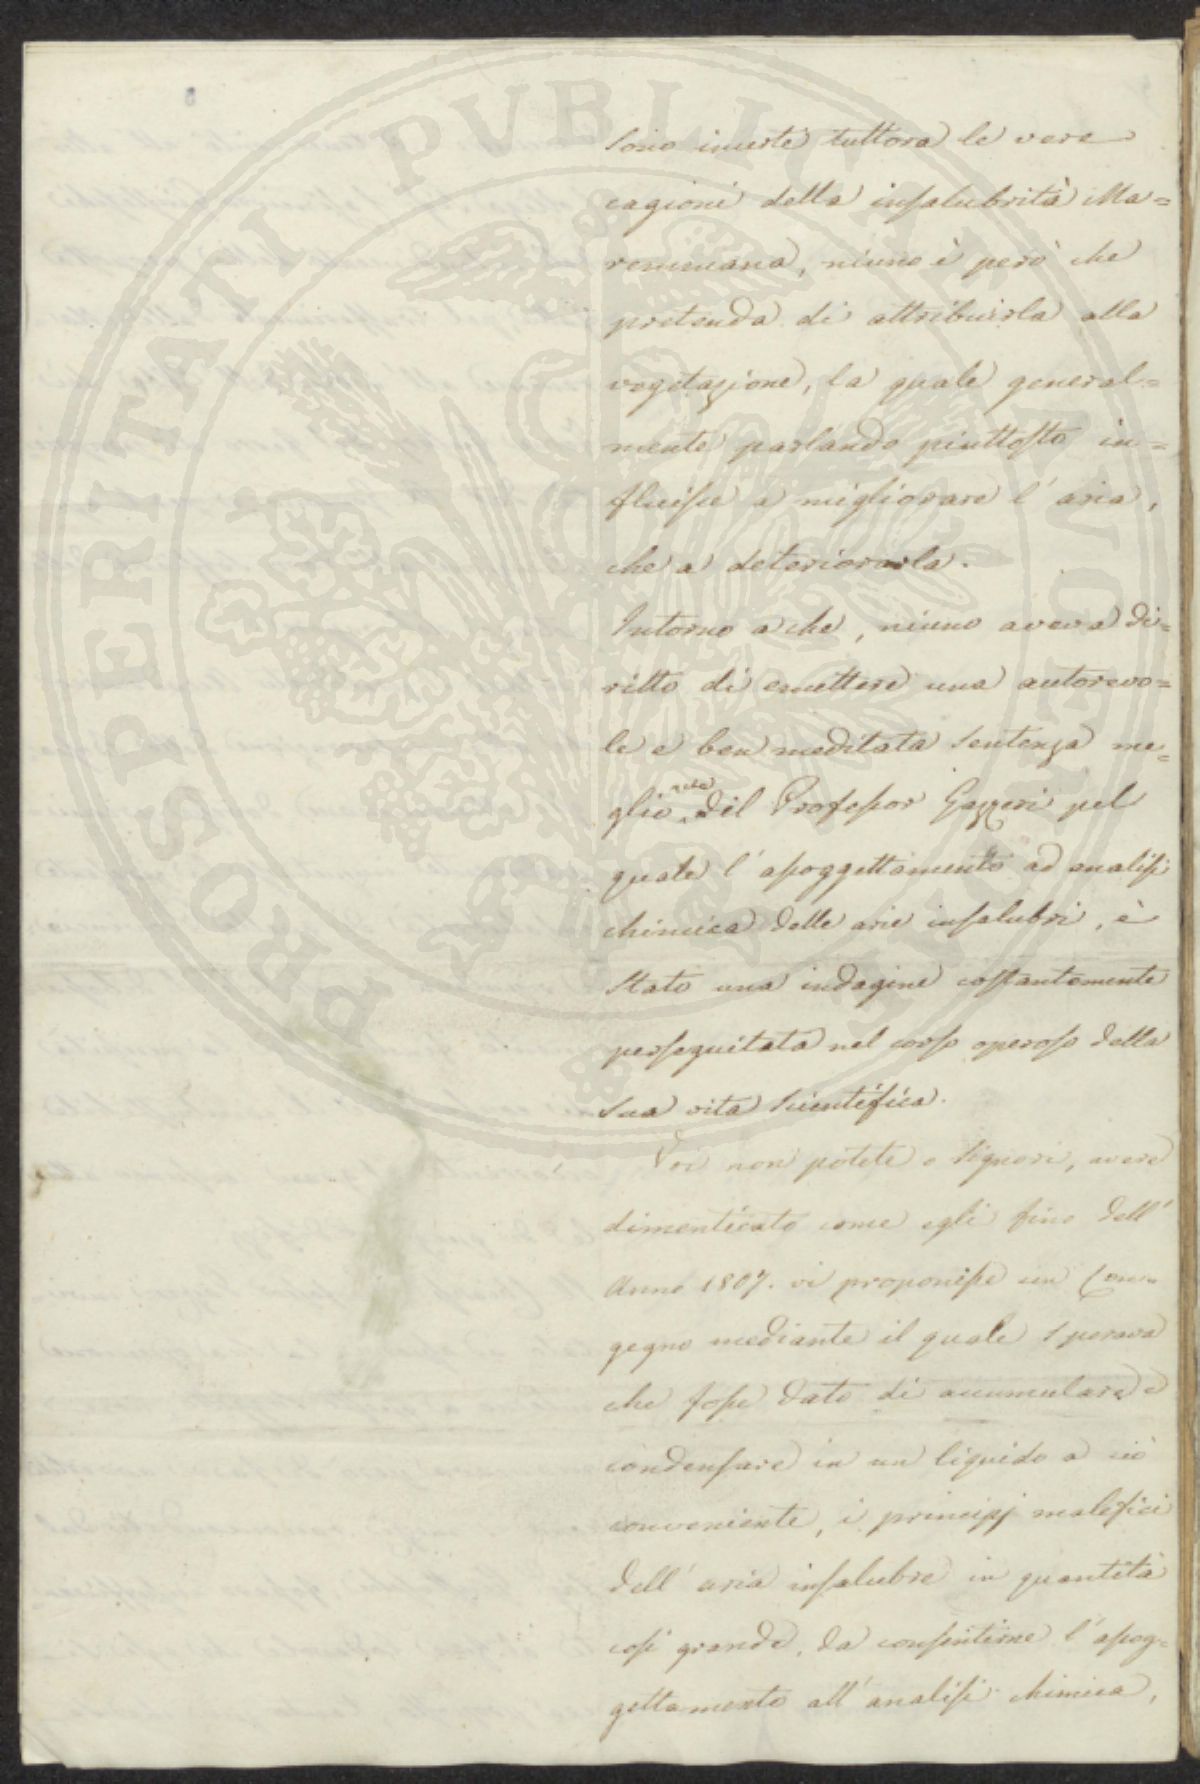 PROSPERITATI PVBLICAE AVGENDAE
Sono incerte tuttora le vere
cagioni della insalubrità Ma=
remmana, niuno è però che
pretenda di attribuirla alla
vegetazione, la quale general=
mente parlando piuttosto in=
fluisce a migliorare l'aria,
che a deteriorarla.
Intorno a che, niuno aveva di=
ritto di emettere una autorevo=
le e ben meditata sentenza me=
glio del Professor Gazzeri pel
quale l'assoggettamento ad analisi
chimica delle arie insalubri, è
stato una indagine costantemente
perseguitata nel corso operoso della
sua vita scientifica.
Voi non potete o Signori, avere
dimenticato come egli fino dell'
Anno 1807. vi proponesse un Con=
gegno mediante il quale sperava
che fosse dato di accumulare e
condensare in un liquido a ciò
conveniente, i principj malefici
dell'aria insalubre in quantità
così grande, da consentirne l'assog=
gettamento all'analisi chimica,